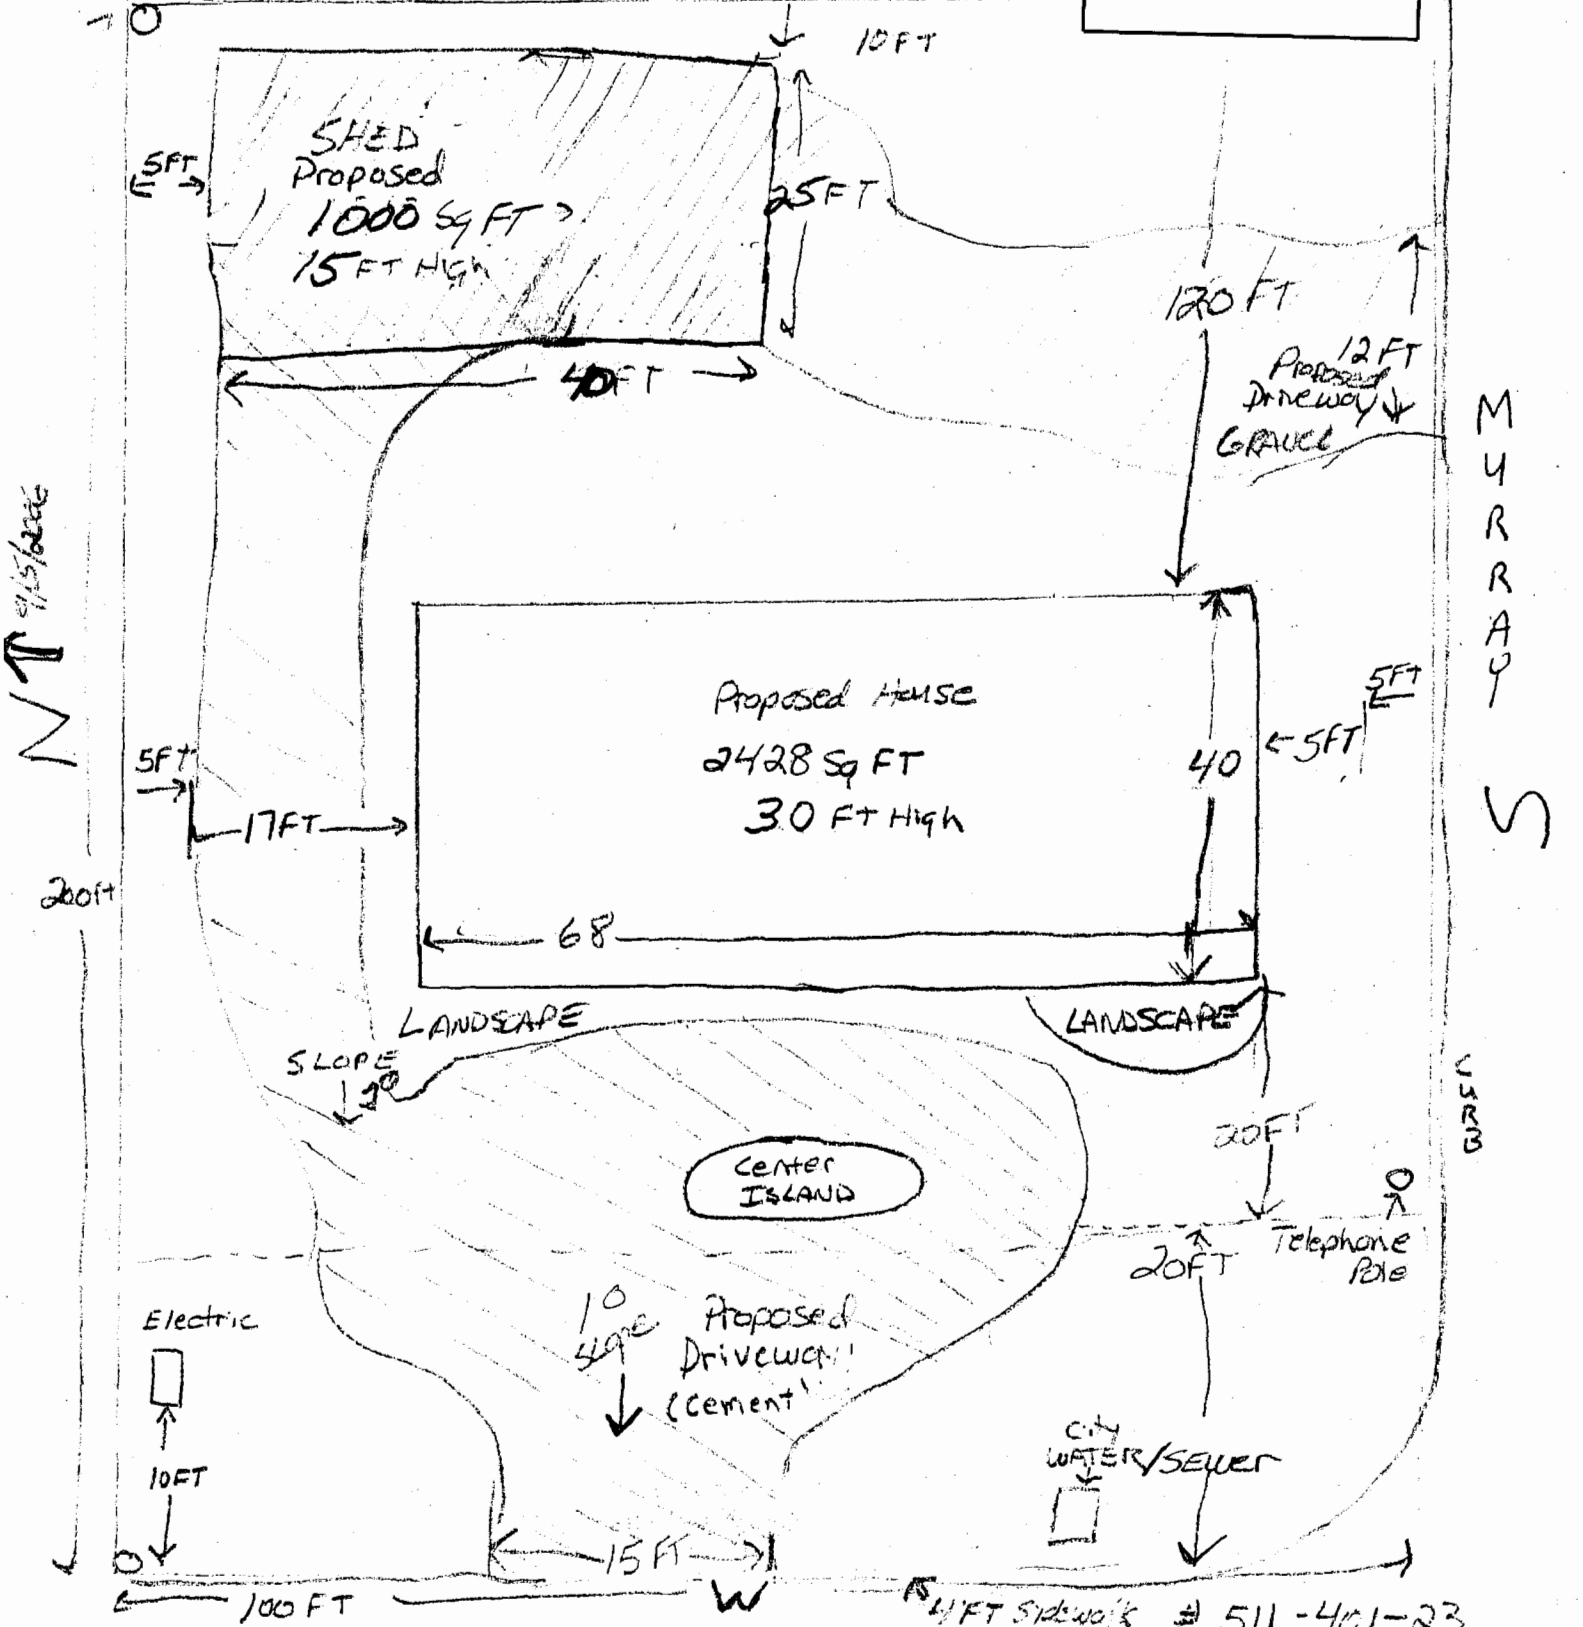 10FT
SHED
Proposed
1000 Sq FT
15 FT High
5FT
25FT
120 FT
12 FT
Proposed
Driveway
GRAVEL
40FT
MURRAY S
9/15/2006
N
Proposed House
2428 Sq FT
30 FT High
40
5FT
5FT
5FT
17FT
200ft
68
LANDSCAPE
LANDSCAPE
SLOPE
1°
CURB
Center
ISLAND
20FT
20FT
Telephone
Pole
Electric
1°
Slope
Proposed
Driveway
(Cement)
City
WATER/SEWER
10FT
15 FT
100 FT
W
4 FT Sidewalk # 511-401-23